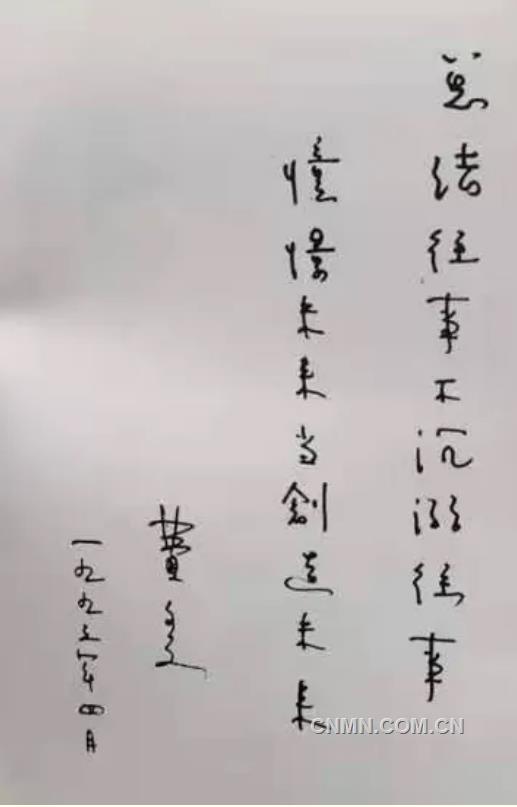 总结往事不沉溺往事
憧憬未来当创造未来
费子文
一九九 年四月
CNMN.COM.CN